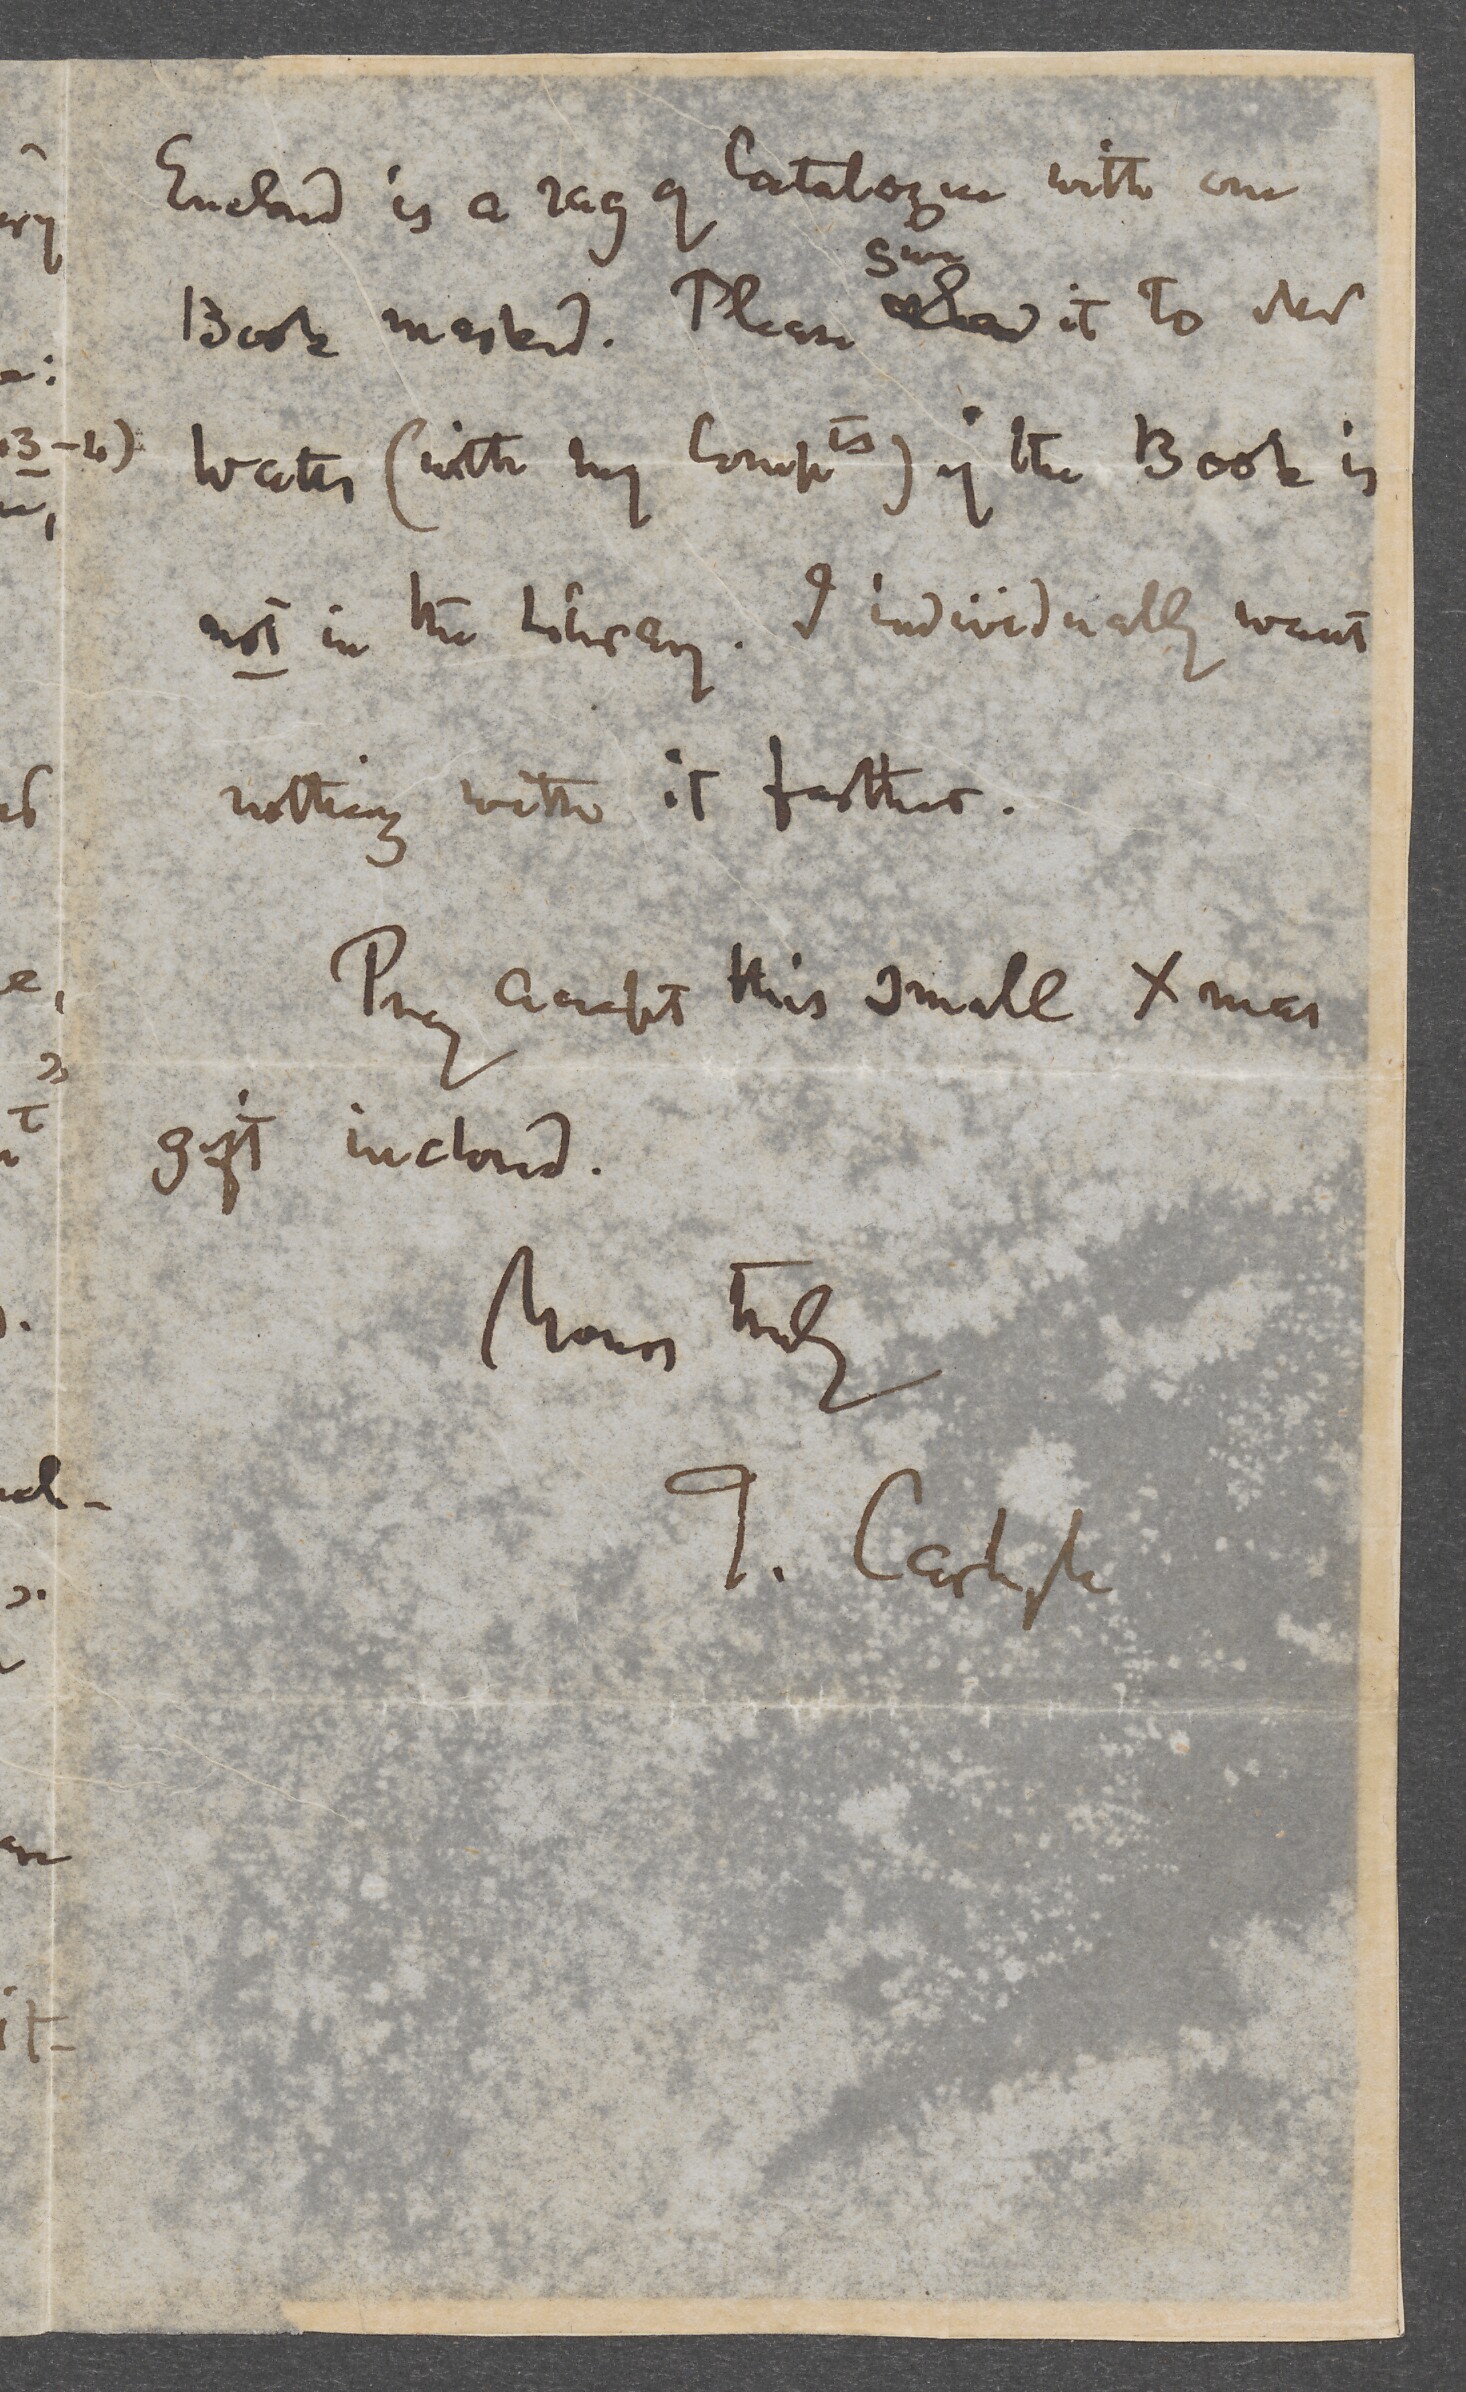 Enclosed is a rag of Catalogue with one
Book marked. Please it to Mr
Watts (with my Compts) if the Book is
not in the Library. I individually want
nothing with it farther.
Pray accept this small Xmas
gift inclosed.
Yours truly
T. Carlyle